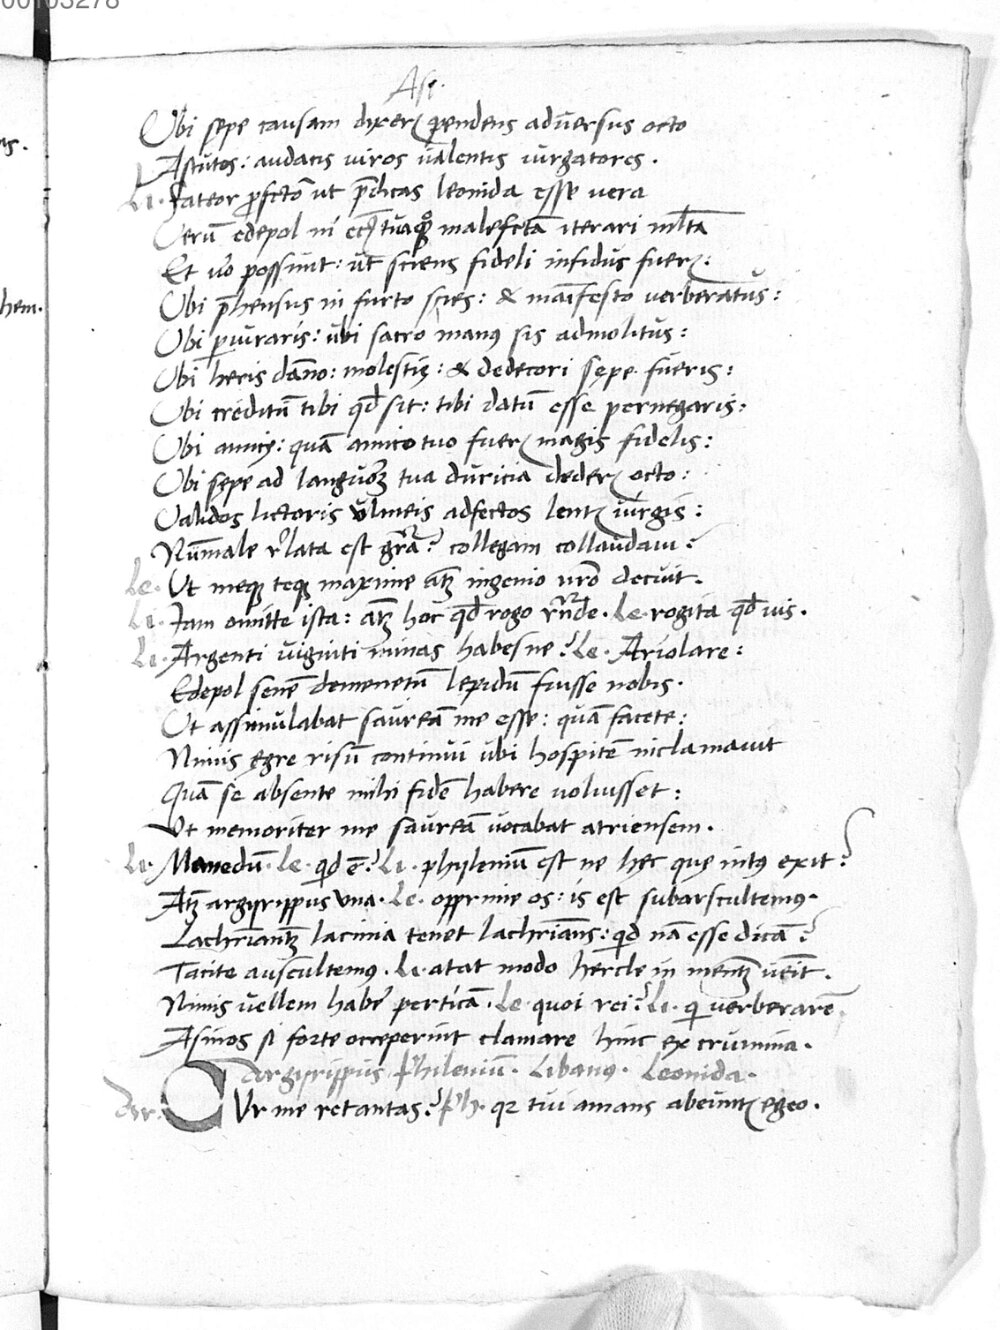 00103278
Asi.
Ubi sepe causam dixerꝭ pendens adversus octo
Astutos: audacis viros valentis iurgatores.
Li. Fateor ꝓfcto ut p̄dicas leonida esse vera
Verū edepol nī tuaqꝫ malefcta iterari mlta
Et vo possunt: ut sciens fideli infidus fuerꝭ:
Ubi p̄hensus in furto sies: & maifesto verberatus:
Ubi ꝑiuraris: ubi sacro manꝰ sis admolitus:
Ubi heris dāno: molestię: & dedecori sępe fueris:
Ubi creditū tibi qd sit: tibi datū esse pernegaris:
Ubi amicę: quā amico tuo fuerꝭ magis fidelis:
Ubi sępe ad languoꝝ tua duricia dederꝭ octo:
Validos lictoris ulmeis adfectos lentꝭ iurgis:
Nūmale rlata est gra? collegam collaudavi?
Le. Ut meqꝫ teqꝫ maxime atqꝫ ingenio nro decuit.
Li. Iam omitte ista: atqꝫ hoc qd rogo rnde. Le. rogita qd vis.
Li. Argenti viginti minas habes ne? Le. Ariolare:
Edepol senē demenetū lepidū fuisse nobis.
Ut assimulabat saureā me esse: quā facete:
Nimis ęgre risū continui ubi hospitē inclamavit
Quā se absente mihi fidē habere voluisset:
Ut memoriter me saureā vocabat atriensem.
Li. Manedū. Le. qd ē? Li. phylenium est ne hęc quę intꝰ exit?
Atqꝫ argyrippus una. Le. opprime os: is est subauscultemꝰ.
Lachrīantꝭ lacinia tenet lachrīans: qd nā esse dicā?
Tacite auscultemꝰ. Li. atat modo hercle in mentꝫ vēit.
Nimis vellem habe perticā. Le. quoi rei? Li. q verberarē
Asinos si forte occeperint clamare hinc ex crumina.
Argyrippus Philenium. Libanꝰ. Leonida.
Ar. CUr me retentas? Ph. qꝛ tui amans abeuntꝭ egeo.